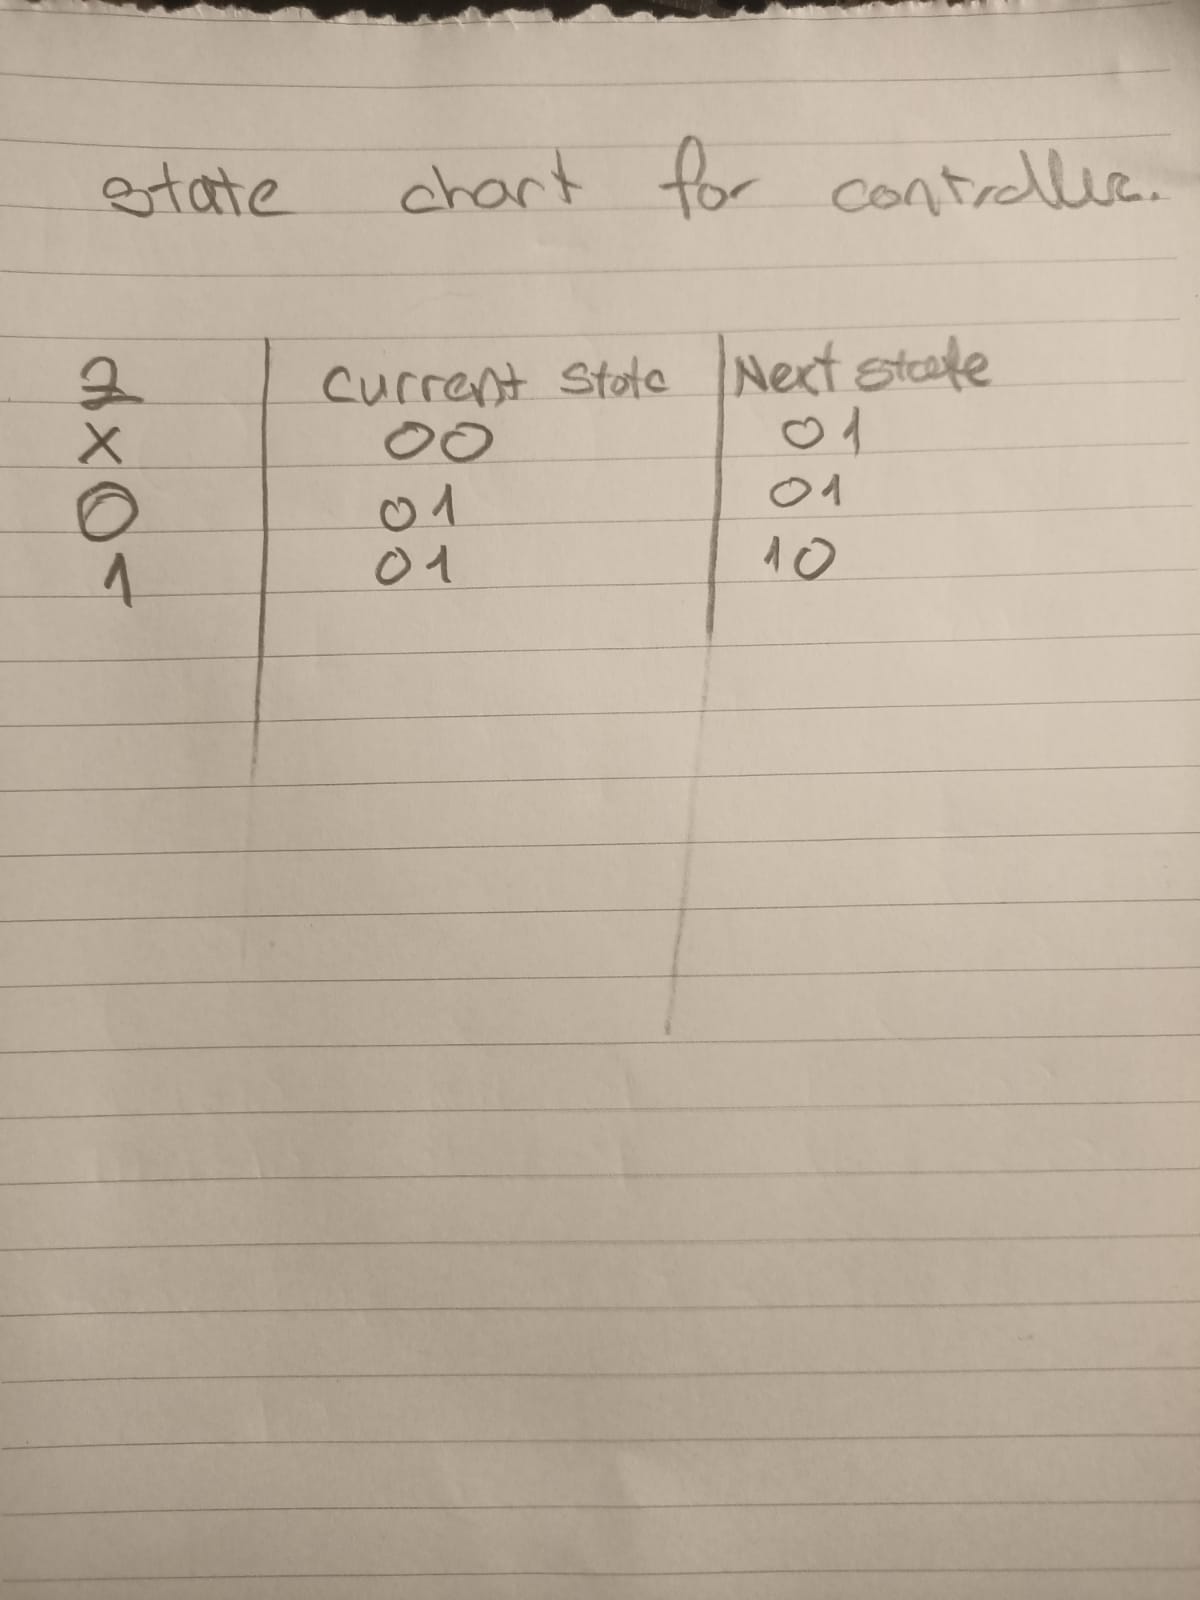 state chart for controller.
2 Current State Next state
X 00 01
0 01 01
1 01 10